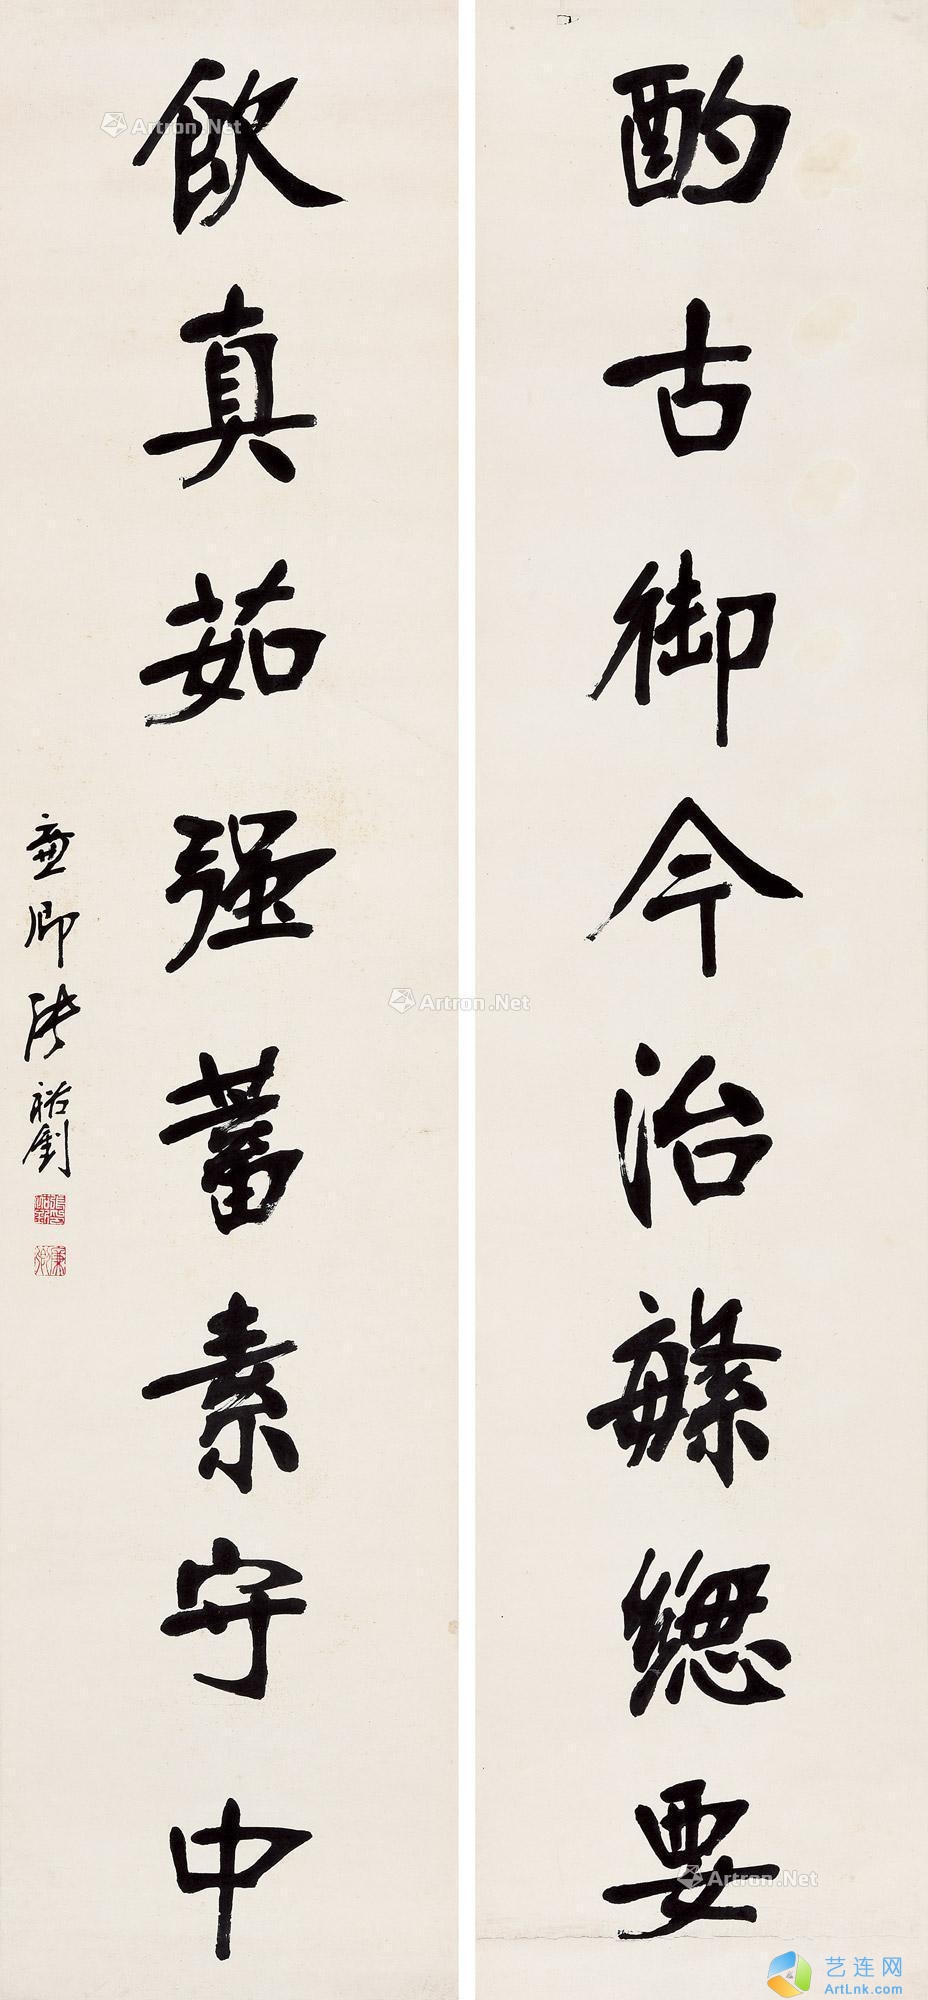 酌古御今治繁總要
飲真茹强蓄素守中
廉卿張裕釗
張裕釗印
廉卿
Artron.Net
Artron.Net
Artron.Net
艺连网
ArtLnk.com